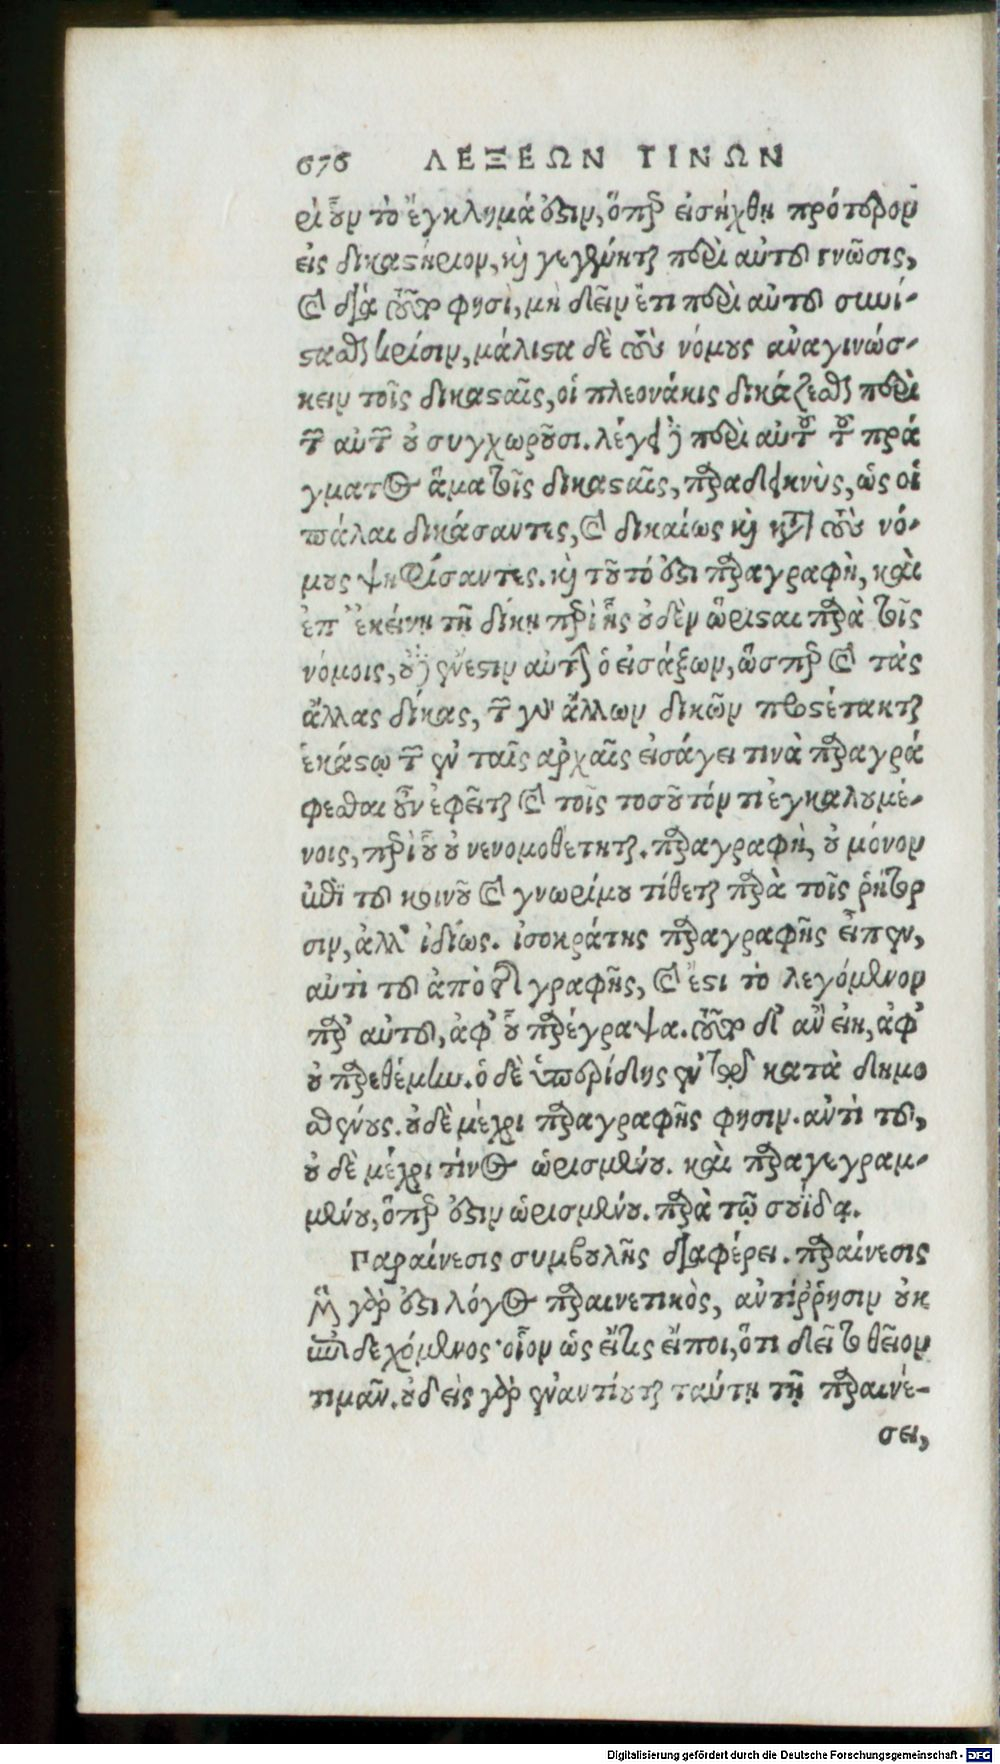 676 ΛΕΞΕΩΝ ΤΙΝΩΝ
ρὶ οὗν τὸ ἔγκλημά ἐστιν, ὅπερ εἰσήχθη πρότερον
εἰς δικαστήριον, καὶ γεγένηται περὶ αὐτοῦ γνῶσις,
καὶ διὰ τοῦτο φησὶ, μὴ δεῖν ἔτι περὶ αὐτοῦ συνί-
στασθαι κρίσιν, μάλιστα δὲ τοὺς νόμους ἀναγινώσ-
κειν τοῖς δικασταῖς, οἱ πλεονάκις δικάζεσθαι περὶ
τῶν αὐτῶν οὐ συγχωροῦσι. λέγει δὲ περὶ αὐτοῦ τοῦ πρά
γματος ἅμα τοῖς δικασταῖς, παραδεικνὺς, ὡς οἱ
πάλαι δικάσαντες, καὶ δικαίως καὶ κατὰ τοὺς νό-
μους ψηφίσαντες. καὶ τοῦτό ἐστι παραγραφὴ, καὶ
ἐπ' ἐκείνῃ τῇ δίκῃ περὶ ἧς οὐδὲν ὥρισται παρὰ τοῖς
νόμοις, οὐδὲ ἔνεστιν αὐτῆς ὁ εἰσάξων, ὥσπερ καὶ τὰς
ἄλλας δίκας, τῶν γὰρ ἄλλων δικῶν προστέτακται
ἑκάστῳ τῶν ἐν ταῖς ἀρχαῖς εἰσάγει τινὰ παραγρά
φεσθαι οὖν ἐφεῖται καὶ τοῖς τοσοῦτόν τι ἐγκαλουμέ-
νοις, περὶ οὗ οὐ νενομοθέτηται. παραγραφὴ, οὐ μόνον
ἐπὶ τοῦ κοινοῦ καὶ γνωρίμου τίθεται παρὰ τοῖς ῥήτορ
σιν, ἀλλ' ἰδίως. ἰσοκράτης παραγραφῆς εἶπεν,
αὐτὶ τοῦ ἀπὸ τῆς γραφῆς, καὶ ἔστι τὸ λεγόμενον
παρ' αὐτοῦ, ἀφ' οὗ παρέγραψα. τοῦτο δ' ἂν εἴη, ἀφ'
οὗ παρεθέμην. ὁ δὲ ὑπερίδης ἐν τῷ κατὰ δημο
σθένους. οὐδὲ μέχρι παραγραφῆς φησιν. αὐτὶ τοῦ,
οὐδὲ μέχρι τίνος ὡρισμένου. καὶ παραγεγραμ-
μένου, ὅπερ ἐστιν ὡρισμένου. παρὰ τῷ σουΐδᾳ.
Παραίνεσις συμβουλῆς διαφέρει. παραίνεσις
μὲν γάρ ἐστι λόγος παραινετικὸς, ἀντίῤῥησιν οὐκ
ἐπιδεχόμενος· οἷον ὡς εἴ τις εἴποι, ὅτι δεῖ τὸ θεῖον
τιμᾶν. οὐδεὶς γὰρ ἐναντιοῦται ταύτῃ τῇ παραινέ-
σει,
Digitalisierung gefördert durch die Deutsche Forschungsgemeinschaft - DFG